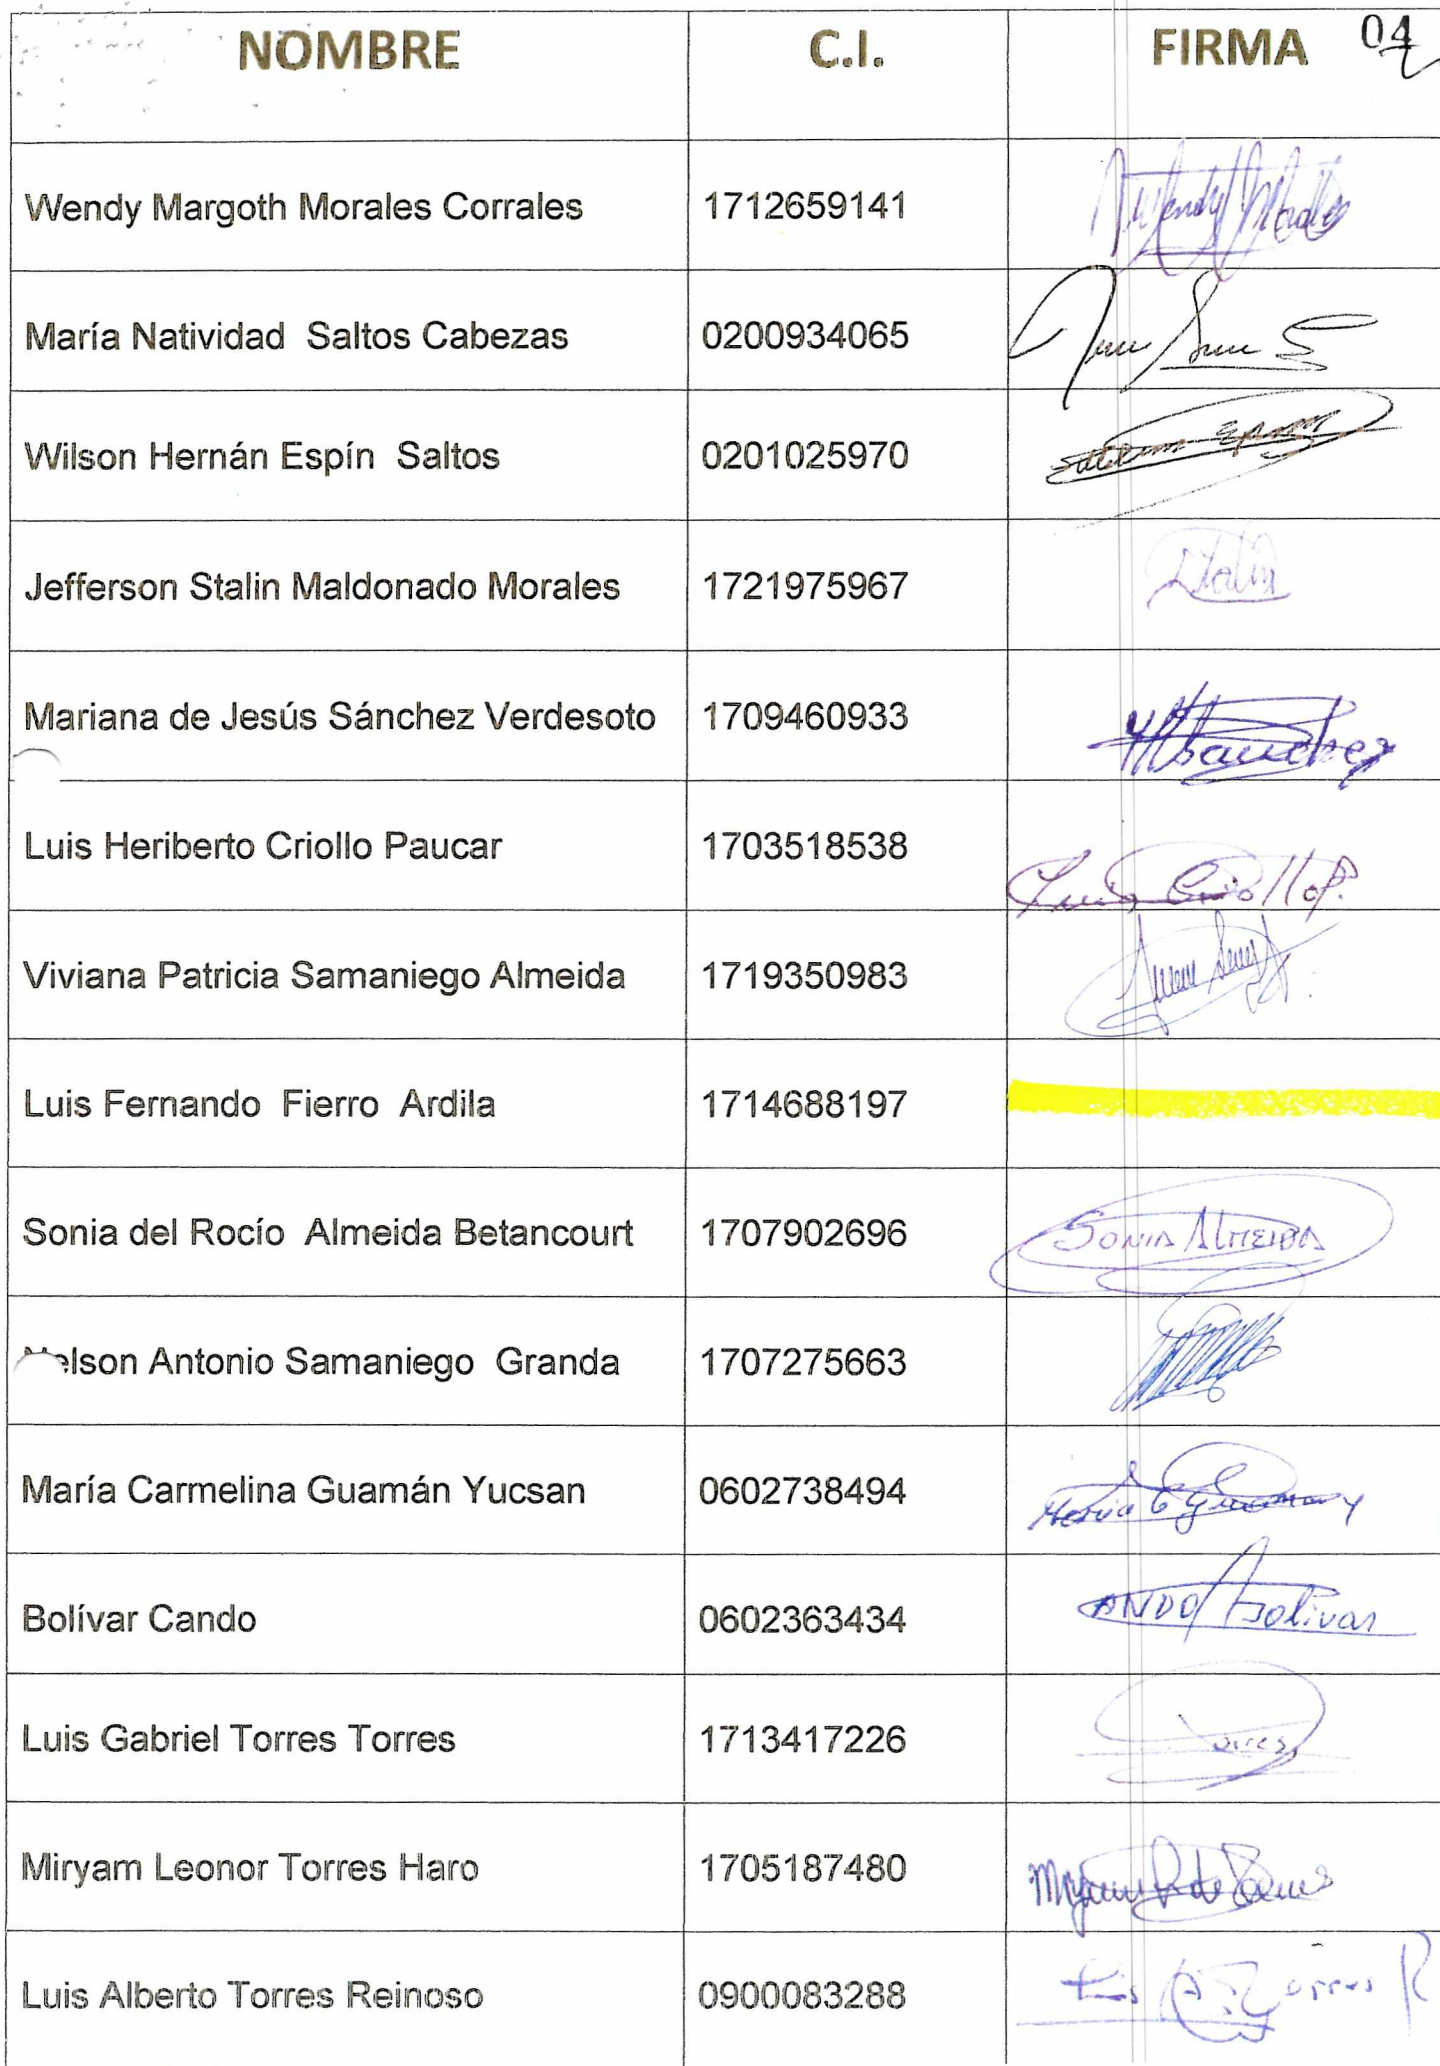 NOMBRE C.I. FIRMA 04
Wendy Margoth Morales Corrales 1712659141 Wendy Morales
María Natividad Saltos Cabezas 0200934065
Wilson Hernán Espín Saltos 0201025970
Jefferson Stalin Maldonado Morales 1721975967 Stalin
Mariana de Jesús Sánchez Verdesoto 1709460933 MSanchez
Luis Heriberto Criollo Paucar 1703518538 Luis Criollo P.
Viviana Patricia Samaniego Almeida 1719350983
Luis Fernando Fierro Ardila 1714688197
Sonia del Rocío Almeida Betancourt 1707902696 SONIA ALMEIDA
Nelson Antonio Samaniego Granda 1707275663
María Carmelina Guamán Yucsan 0602738494 Maria C Guaman Y
Bolívar Cando 0602363434 CANDO Bolivar
Luis Gabriel Torres Torres 1713417226 Torres
Miryam Leonor Torres Haro 1705187480
Luis Alberto Torres Reinoso 0900083288 Luis A. Torres R